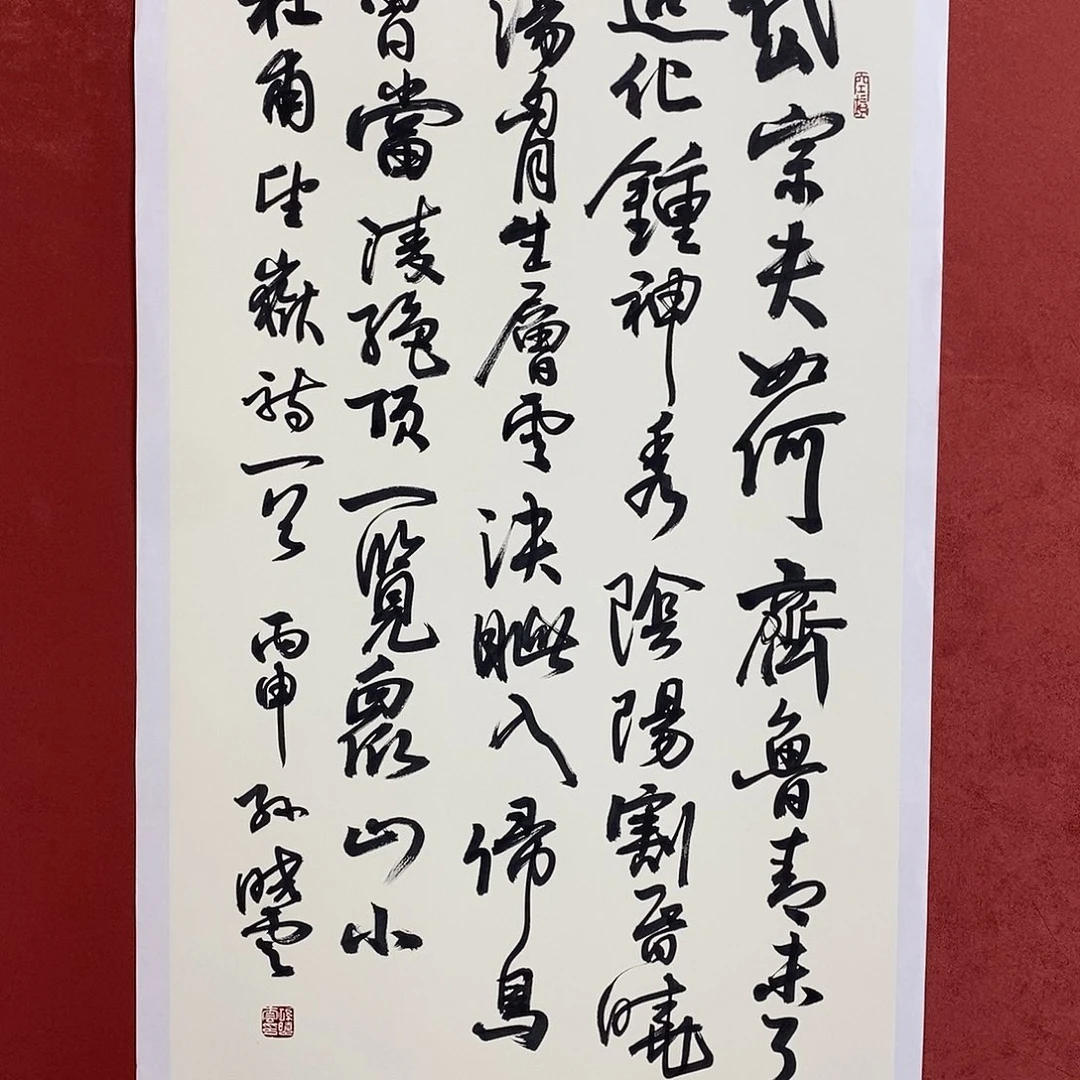 岱宗夫如何齊魯青未了
造化鍾神秀陰陽割昏曉
蕩胷生層雲決眦入歸鳥
會當淩絕頂一覽眾山小
杜甫望嶽詩一首 丙申 孫曉雲